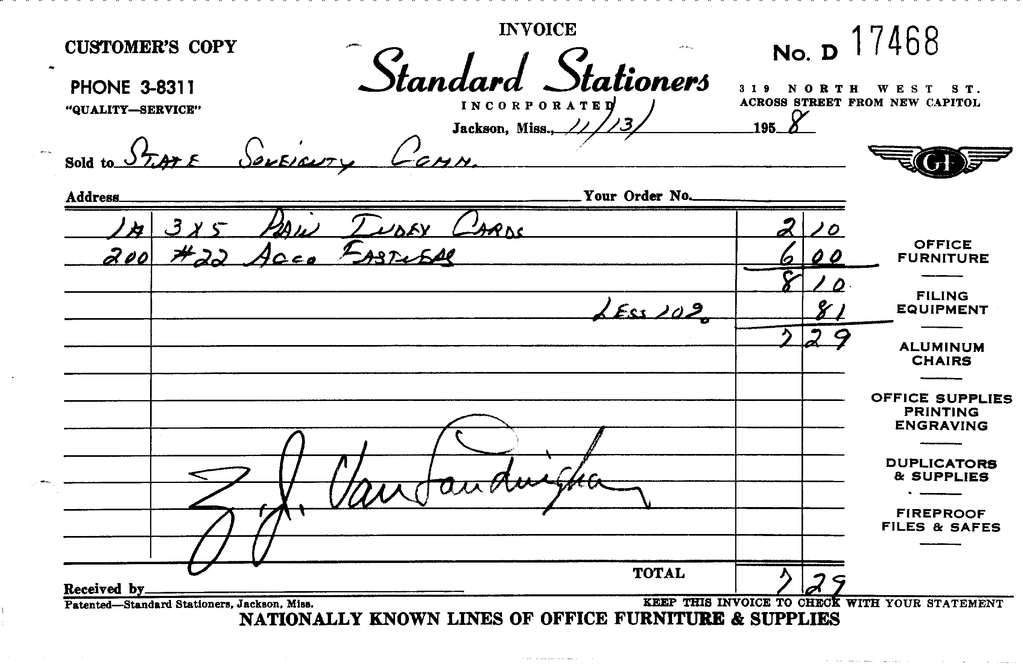 INVOICE
CUSTOMER'S COPY
No. D 17468
PHONE 3-8311
Standard Stationers
319 NORTH WEST ST.
"QUALITY—SERVICE"
INCORPORATED
ACROSS STREET FROM NEW CAPITOL
Jackson, Miss., 11/13/ 1958
Sold to STATE SOVEIGNTY COMM.
GF
Address Your Order No.
3 X 5 PLAIN INDEX CARDS 2 10
200 #22 ACCO FASTNERS 6 00
8 10
LESS 10% 81
7 29
OFFICE
FURNITURE
FILING
EQUIPMENT
ALUMINUM
CHAIRS
OFFICE SUPPLIES
PRINTING
ENGRAVING
DUPLICATORS
& SUPPLIES
FIREPROOF
FILES & SAFES
Z. J. Van Landingham
TOTAL 7 29
Received by
Patented—Standard Stationers, Jackson, Miss.
KEEP THIS INVOICE TO CHECK WITH YOUR STATEMENT
NATIONALLY KNOWN LINES OF OFFICE FURNITURE & SUPPLIES